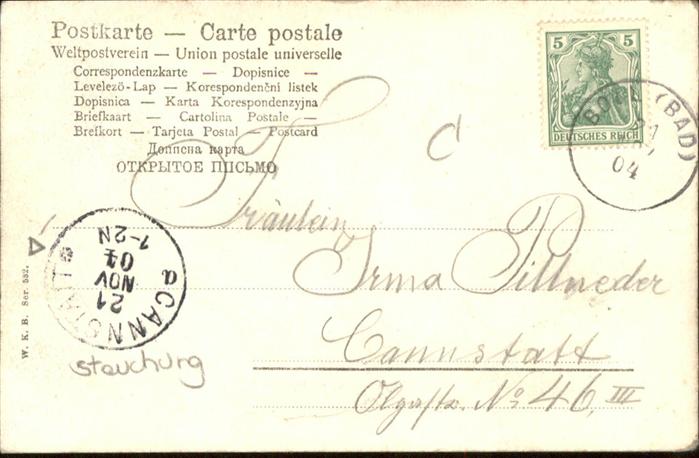 Postkarte — Carte postale
Weltpostverein — Union postale universelle
Correspondenzkarte — Dopisnice —
Levelező-Lap — Korespondenční listek
Dopisnica — Karta Korespondenzyjna
Briefkaart — Cartolina Postale —
Brefkort — Tarjeta Postal — Postcard
Дописна карта
ОТКРЫТОЕ ПИСЬМО
5 5
DEUTSCHES REICH
(BAD)
04
Fräulein
Irma Pillmeder
Cannstatt
Olgastr. No 46, III
CANNSTATT
21
NOV
04
1-2N
W. K. B. Ser. 532.
stauchung